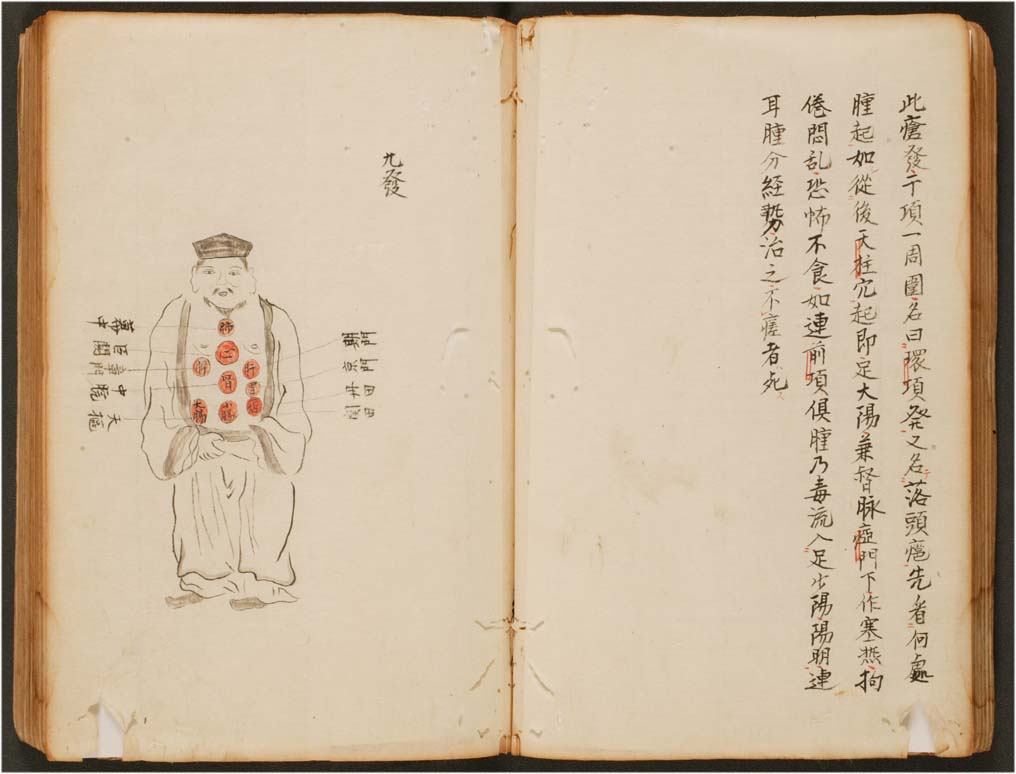 此瘡發于項一周圍名曰環項発又名落頭疤先看何處
腫起如從後天柱穴起即定大陽兼督脉瘂門下作寒熱拘
倦悶乱恐怖不食如連前項俱腫乃毒流入足少陽陽明連
耳腫分経勢治之不瘥者死
九發
肺
心
肝
腎
大腸
小腸
巨闕
章門
中脘
天樞